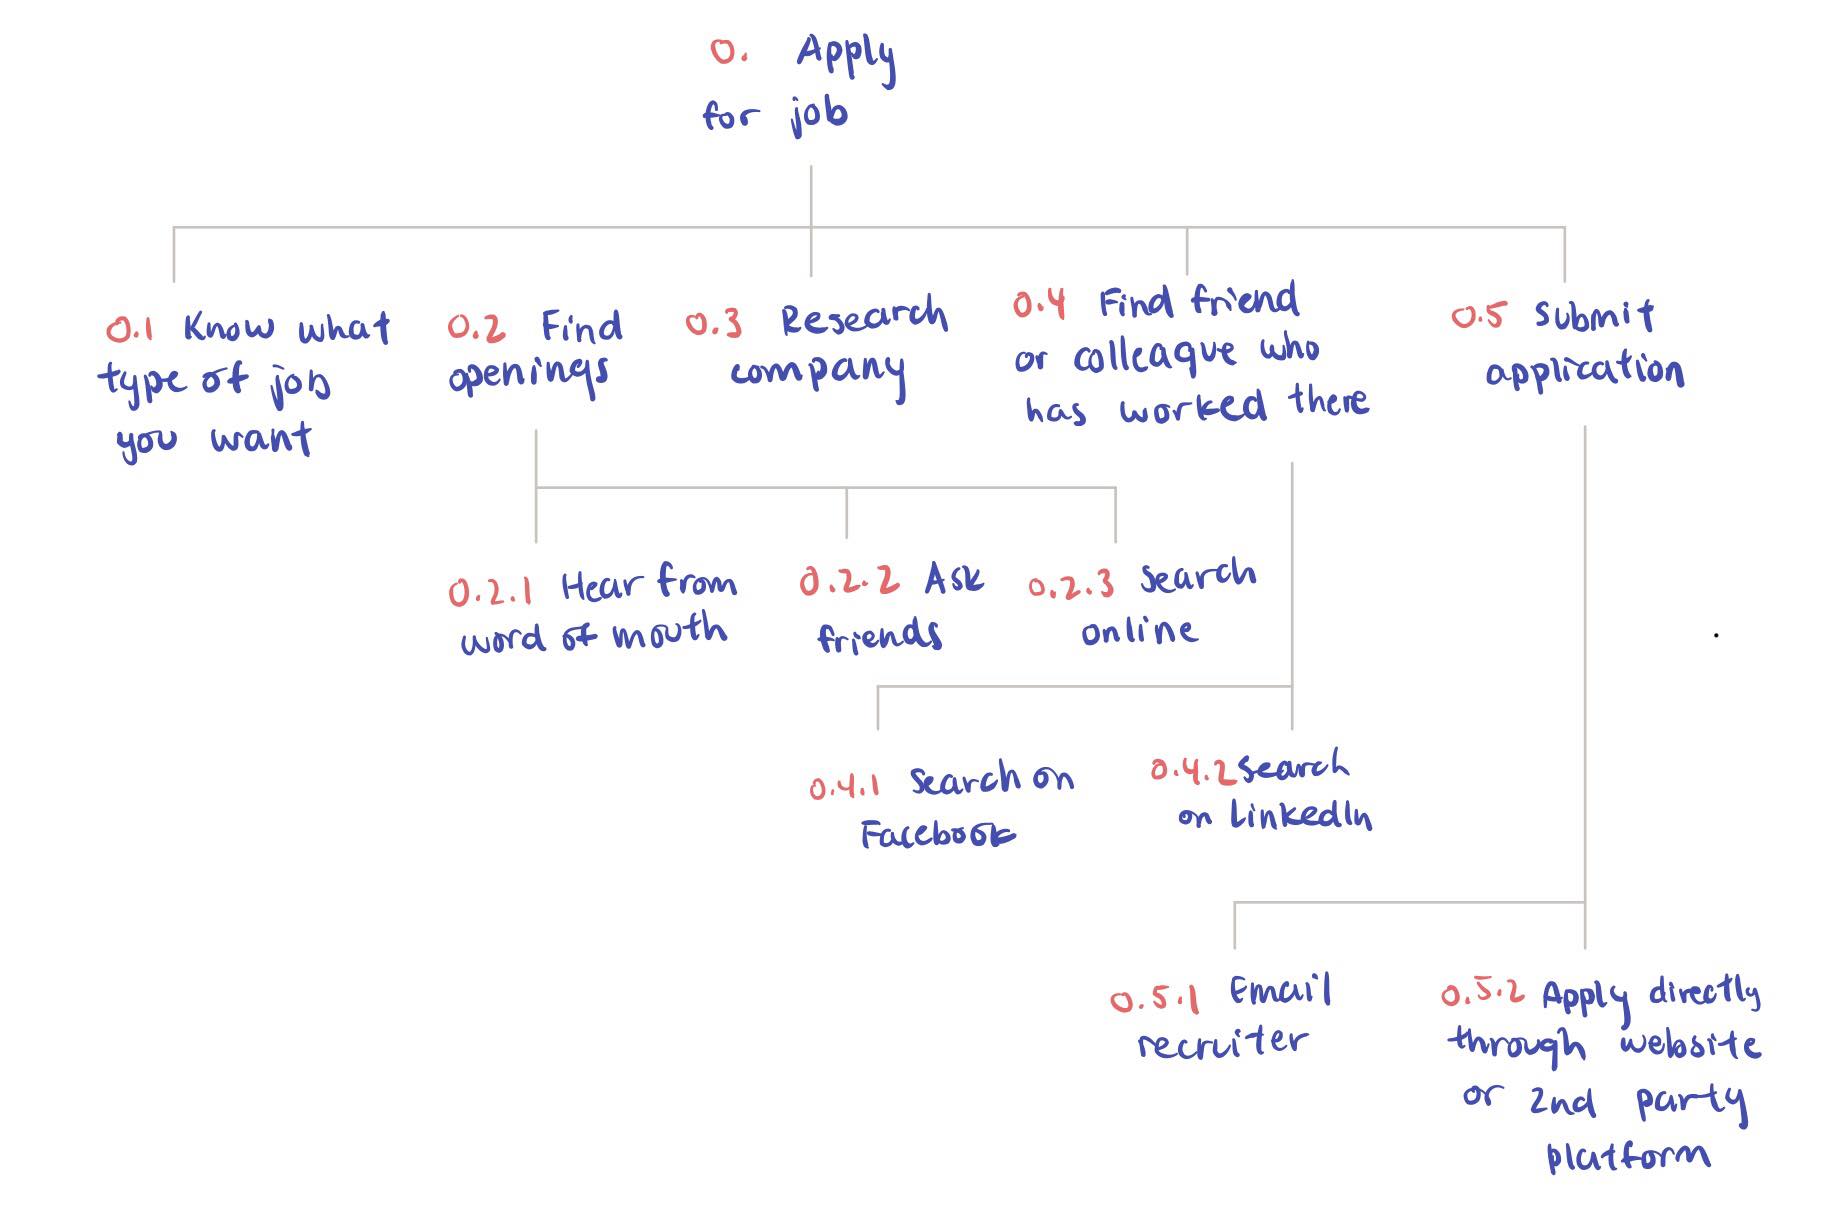 0. Apply
for job
0.1 Know what
type of job
you want
0.2 Find
openings
0.3 Research
company
0.4 Find friend
or colleague who
has worked there
0.5 Submit
application
0.2.1 Hear from
word of mouth
0.2.2 Ask
friends
0.2.3 Search
online
0.4.1 Search on
Facebook
0.4.2 Search
on LinkedIn
0.5.1 Email
recruiter
0.5.2 Apply directly
through website
or 2nd party
platform